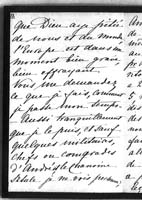 que Dieu aie pitié
de nous et du monde
l'Europe est dans un
moment bien grave,
bien effrayant.
Vous me demandez
ce que je fais, comment
je passe mon temps.
Aussi tranquillement
que je le puis, et sauf
quelques militaires,
chefs ou camarades
d'André et le chanoine
je ne vois personne,